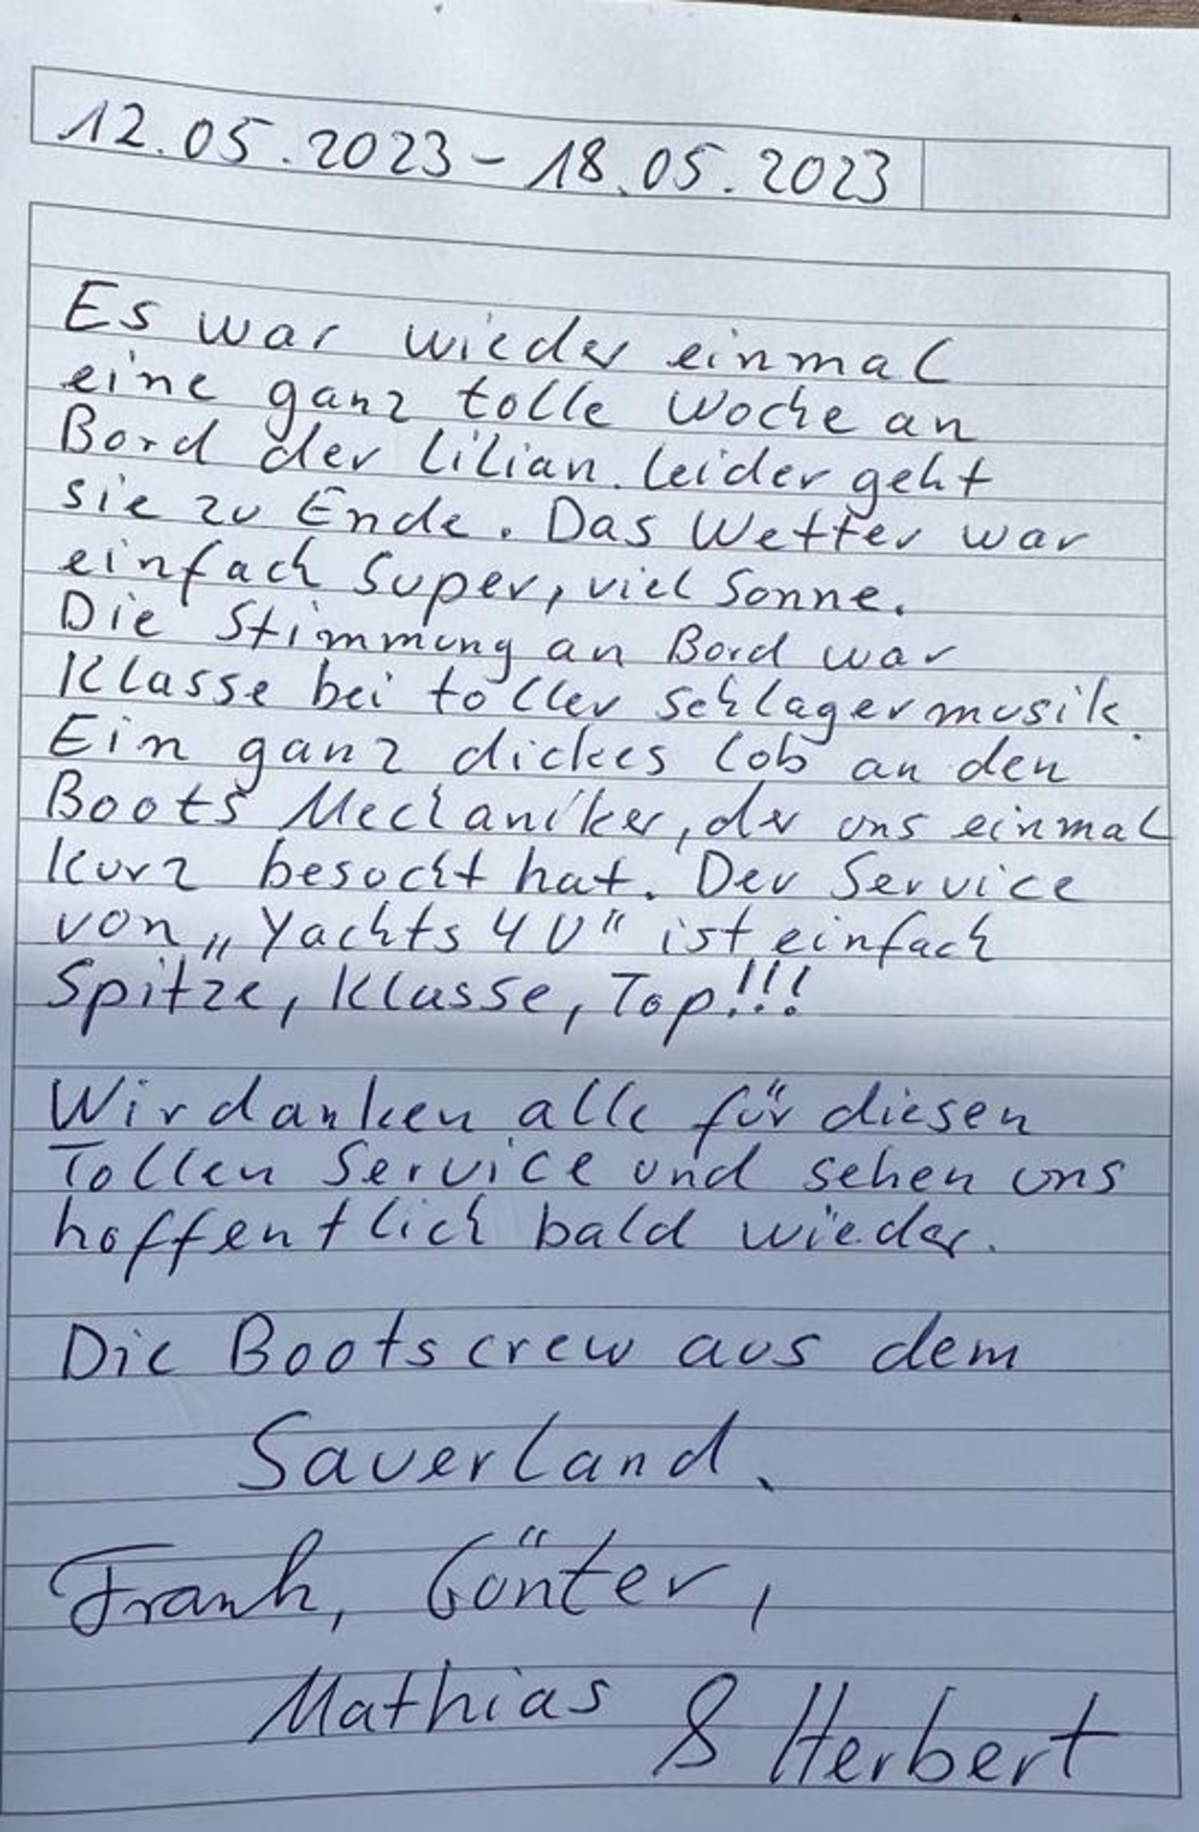 12.05.2023 - 18.05.2023
Es war wieder einmal
eine ganz tolle Woche an
Bord der Lilian. Leider geht
sie zu Ende. Das Wetter war
einfach Super, viel Sonne.
Die Stimmung an Bord war
Klasse bei toller Schlagermusik.
Ein ganz dickes Lob an den
Boots Mechaniker, der uns einmal
kurz besucht hat. Der Service
von „Yachts 4U“ ist einfach
Spitze, Klasse, Top!!!
Wir danken alle für diesen
Tollen Service und sehen uns
hoffentlich bald wieder.
Die Bootscrew aus dem
Sauerland.
Frank, Günter,
Mathias & Herbert